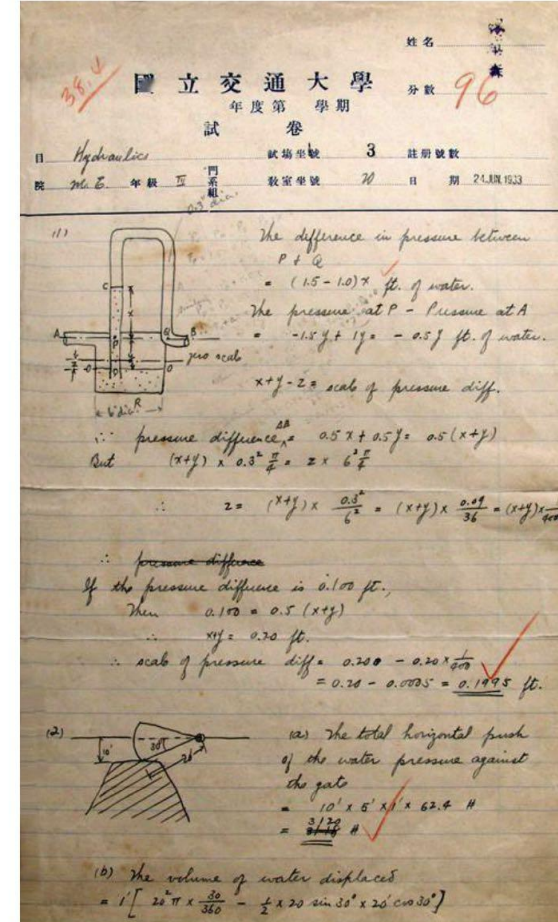 姓名
國立交通大學
38.4
分數 96
年度第 學期
試卷
目 Hydraulics 試場坐號 3 註册號數
院 M.E. 年級 IV 門系組 教室坐號 20 日期 24 JUN. 1933
0.3" dia.
(1)
The difference in pressure between
P & Q
= (1.5 - 1.0) x ft. of water.
The pressure at P - Pressure at A
= -1.5 y + 1 y = -0.5 y ft. of water.
x + y - z = scale of pressure diff.
C
x
A
P
Q
B
y
zero scale
O
O
D
R
6" dia.
∴ pressure difference AB = 0.5 x + 0.5 y = 0.5 (x+y)
But (x+y) x 0.3² π/4 = z x 6² π/4
∴ z = (x+y) x 0.3²/6² = (x+y) x 0.09/36 = (x+y) x 1/400
∴ pressure difference
If the pressure difference is 0.100 ft.,
Then 0.100 = 0.5 (x+y)
∴ x+y = 0.20 ft.
∴ scale of pressure diff = 0.200 - 0.20 x 1/400
= 0.20 - 0.0005 = 0.1995 ft.
(2)
10'
30°
20'
(a) The total horizontal push
of the water pressure against
the gate
= 10' x 5' x 1' x 62.4 #
= 3120 #
(b) The volume of water displaced
= 1' [ 20² π x 30/360 - 1/2 x 20 sin 30° x 20' cos 30° ]